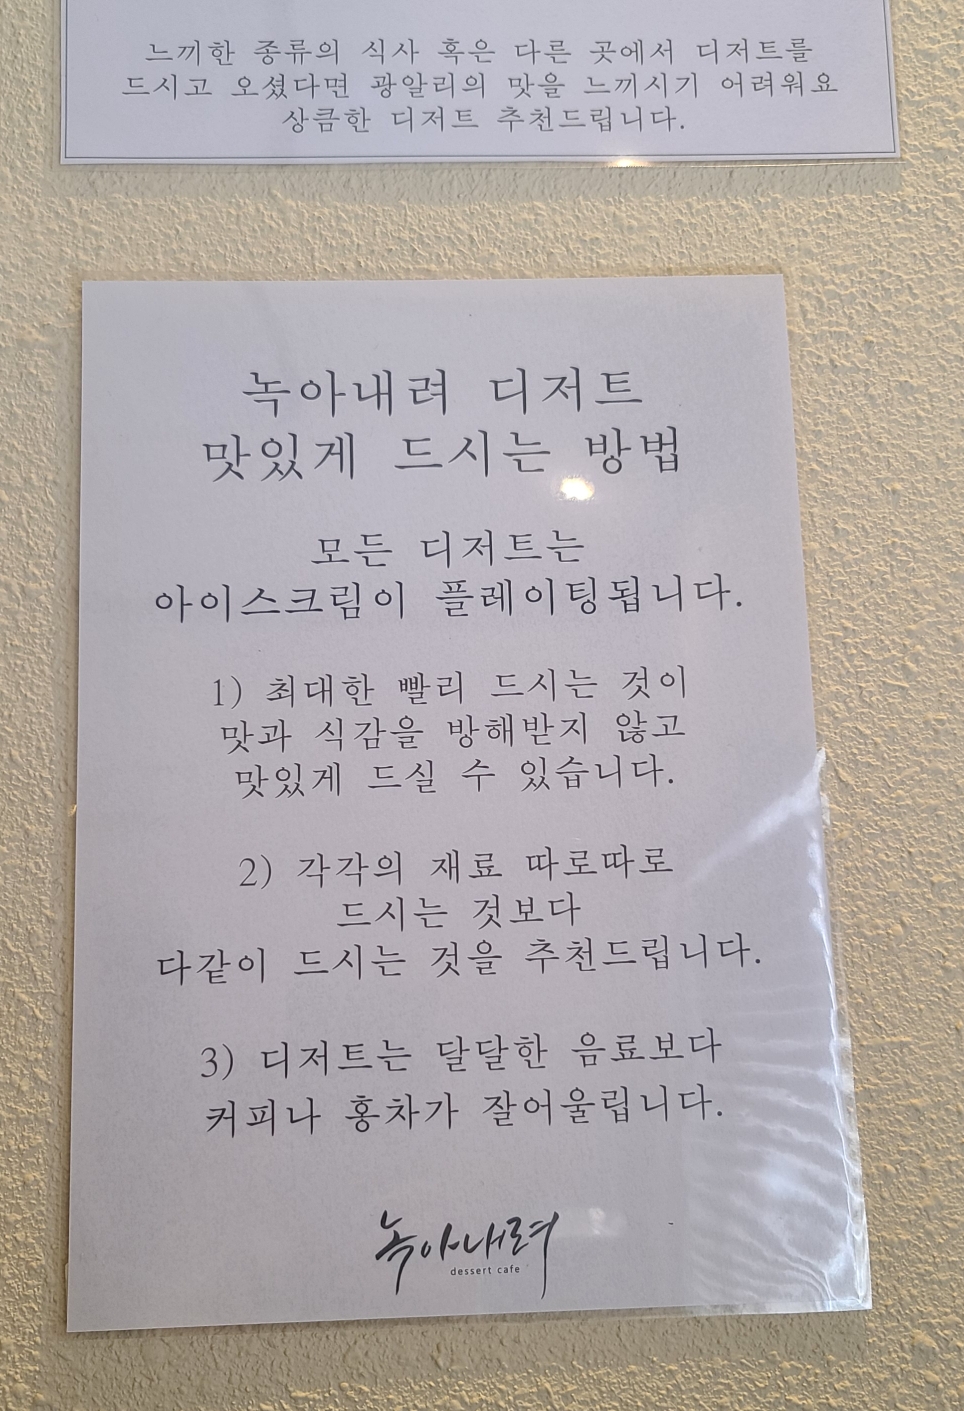 느끼한 종류의 식사 혹은 다른 곳에서 디저트를
드시고 오셨다면 광알리의 맛을 느끼시기 어려워요
상큼한 디저트 추천드립니다.
녹아내려 디저트
맛있게 드시는 방법
모든 디저트는
아이스크림이 플레이팅됩니다.
1) 최대한 빨리 드시는 것이
맛과 식감을 방해받지 않고
맛있게 드실 수 있습니다.
2) 각각의 재료 따로따로
드시는 것보다
다같이 드시는 것을 추천드립니다.
3) 디저트는 달달한 음료보다
커피나 홍차가 잘어울립니다.
녹아내려
dessert cafe